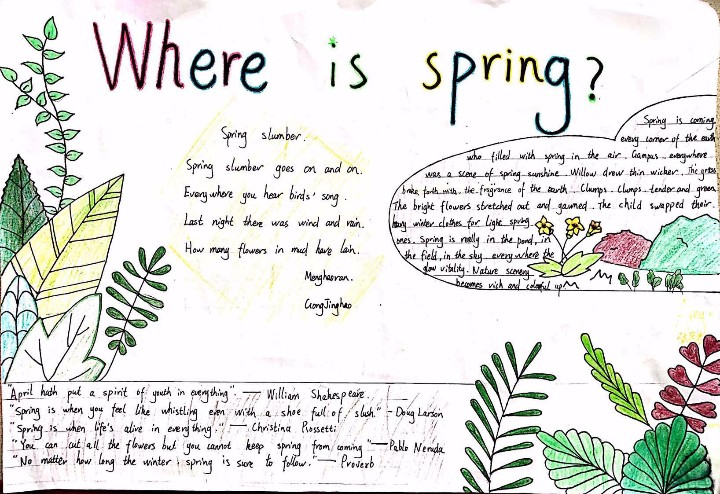 Where is spring?
Spring slumber.
Spring slumber goes on and on.
Everywhere you hear birds' song.
Last night there was wind and rain.
How many flowers in mud have lain.
Menghaoran.
GongJinghao
Spring is coming
every corner of the earth
who filled with spring in the air. Campus everywhere
was a scene of spring sunshine. Willow drew thin wicker. The grass
broke forth with the fragrance of the earth. Clumps. Clumps. tender and green.
The bright flowers stretched out and yawned. The child swapped their
heavy winter clothes for light spring
ones. Spring is really in the pond, in
the field, in the sky everywhere the
glow vitality. Nature scenery
becomes rich and colorful up
"April hath put a spirit of youth in everything." — William Shakespeare
"Spring is when you feel like whistling even with a shoe full of slush." - Doug Larson
"Spring is when life's alive in everything." — Christina Rossetti
"You can cut all the flowers but you cannot keep spring from coming" — Pablo Neruda
"No matter how long the winter, spring is sure to follow." — Proverb